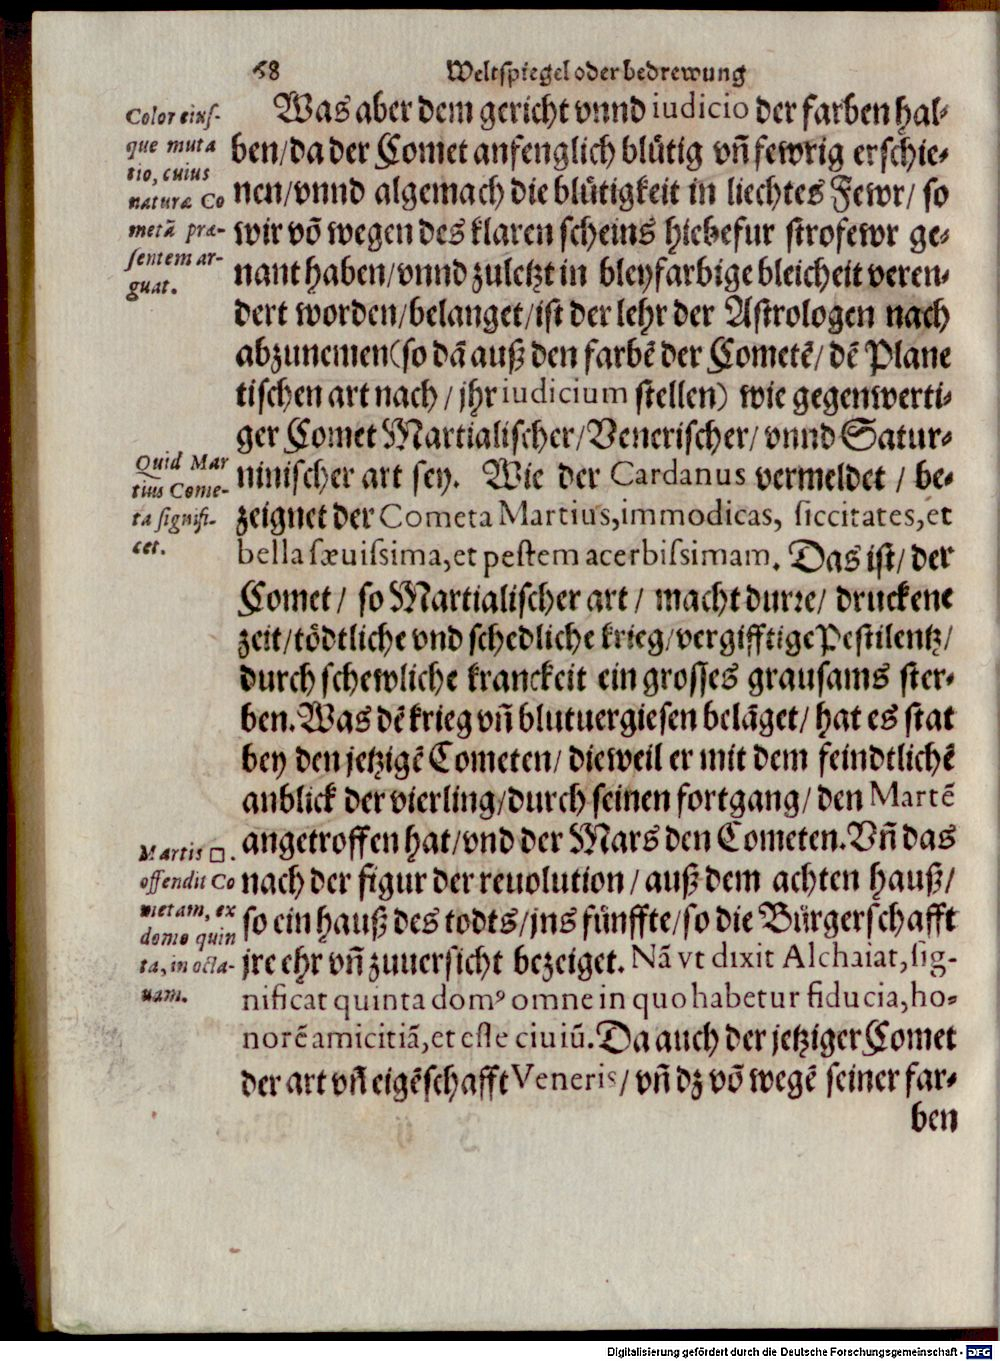 68
Weltspiegel oder bedrewung
Was aber dem gericht vnnd iudicio der farben hal-
ben/da der Comet anfenglich blůtig vñ fewrig erschie-
nen/vnnd algemach die blůtigkeit in liechtes Fewr/ so
wir võ wegen des klaren scheins hiebefur strofewr ge-
nant haben/vnnd zuletzt in bleyfarbige bleicheit veren-
dert worden/belanget/ist der lehr der Astrologen nach
abzunemen(so dā auß den farbē der Cometē/dē Plane
tischen art nach/jhr iudicium stellen) wie gegenwerti-
ger Comet Martialischer/Venerischer/vnnd Satur-
ninischer art sey. Wie der Cardanus vermeldet / be-
zeignet der Cometa Martius,immodicas, siccitates,et
bella sæuissima,et pestem acerbissimam. Das ist/ der
Comet/ so Martialischer art/ macht durre/ druckene
zeit/tödtliche vnd schedliche krieg/vergifftige Pestilentz/
durch schewliche kranckeit ein grosses grausams ster-
ben. Was dē krieg vñ blutuergiesen belāget/ hat es stat
bey den jetzigē Cometen/ dieweil er mit dem feindtlichē
anblick der vierling/durch seinen fortgang/ den Martē
angetroffen hat/vnd der Mars den Cometen. Vñ das
nach der figur der reuolution/ auß dem achten hauß/
so ein hauß des todts/jns fünffte/so die Bürgerschafft
jre ehr vñ zuuersicht bezeiget. Nā vt dixit Alchaiat,sig-
nificat quinta domꝰ omne in quo habetur fiducia,ho-
norē amicitiā,et esse ciuiū. Da auch der jetziger Comet
der art vñ eigēschafft Veneris/ vñ dz võ wegē seiner far-
ben
Color eiuſ-
que muta
tio, cuius
naturæ Co
metā præ-
sentem ar-
guat.
Quid Mar
tius Come-
ta signifi-
cet.
Martis □.
offendit Co
metam, ex
domo quin
ta, in octa-
uam.
Digitalisierung gefördert durch die Deutsche Forschungsgemeinschaft - DFG